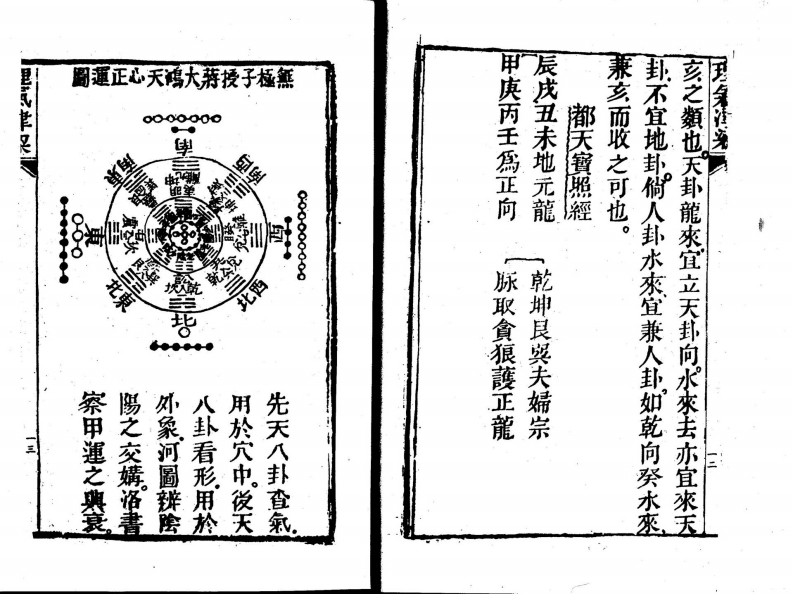 理氣津梁
亥之類也。天卦龍來。宜立天卦向。水來去亦宜來天
卦。不宜地卦。倘人卦水來。宜兼人卦。如乾向癸水來。
兼亥而收之可也。
都天寶照經
辰戌丑未地元龍
乾坤艮巽夫婦宗
甲庚丙壬為正向
脉取貪狼護正龍
一二
理氣津梁
無極子授蔣大鴻天心正運圖
南
東南
西南
東
西
東北
西北
北
先天八卦查氣。
用於穴中。後天
八卦看形。用於
外象。河圖辨陰
陽之交媾。洛書
察甲運之興衰。
一三